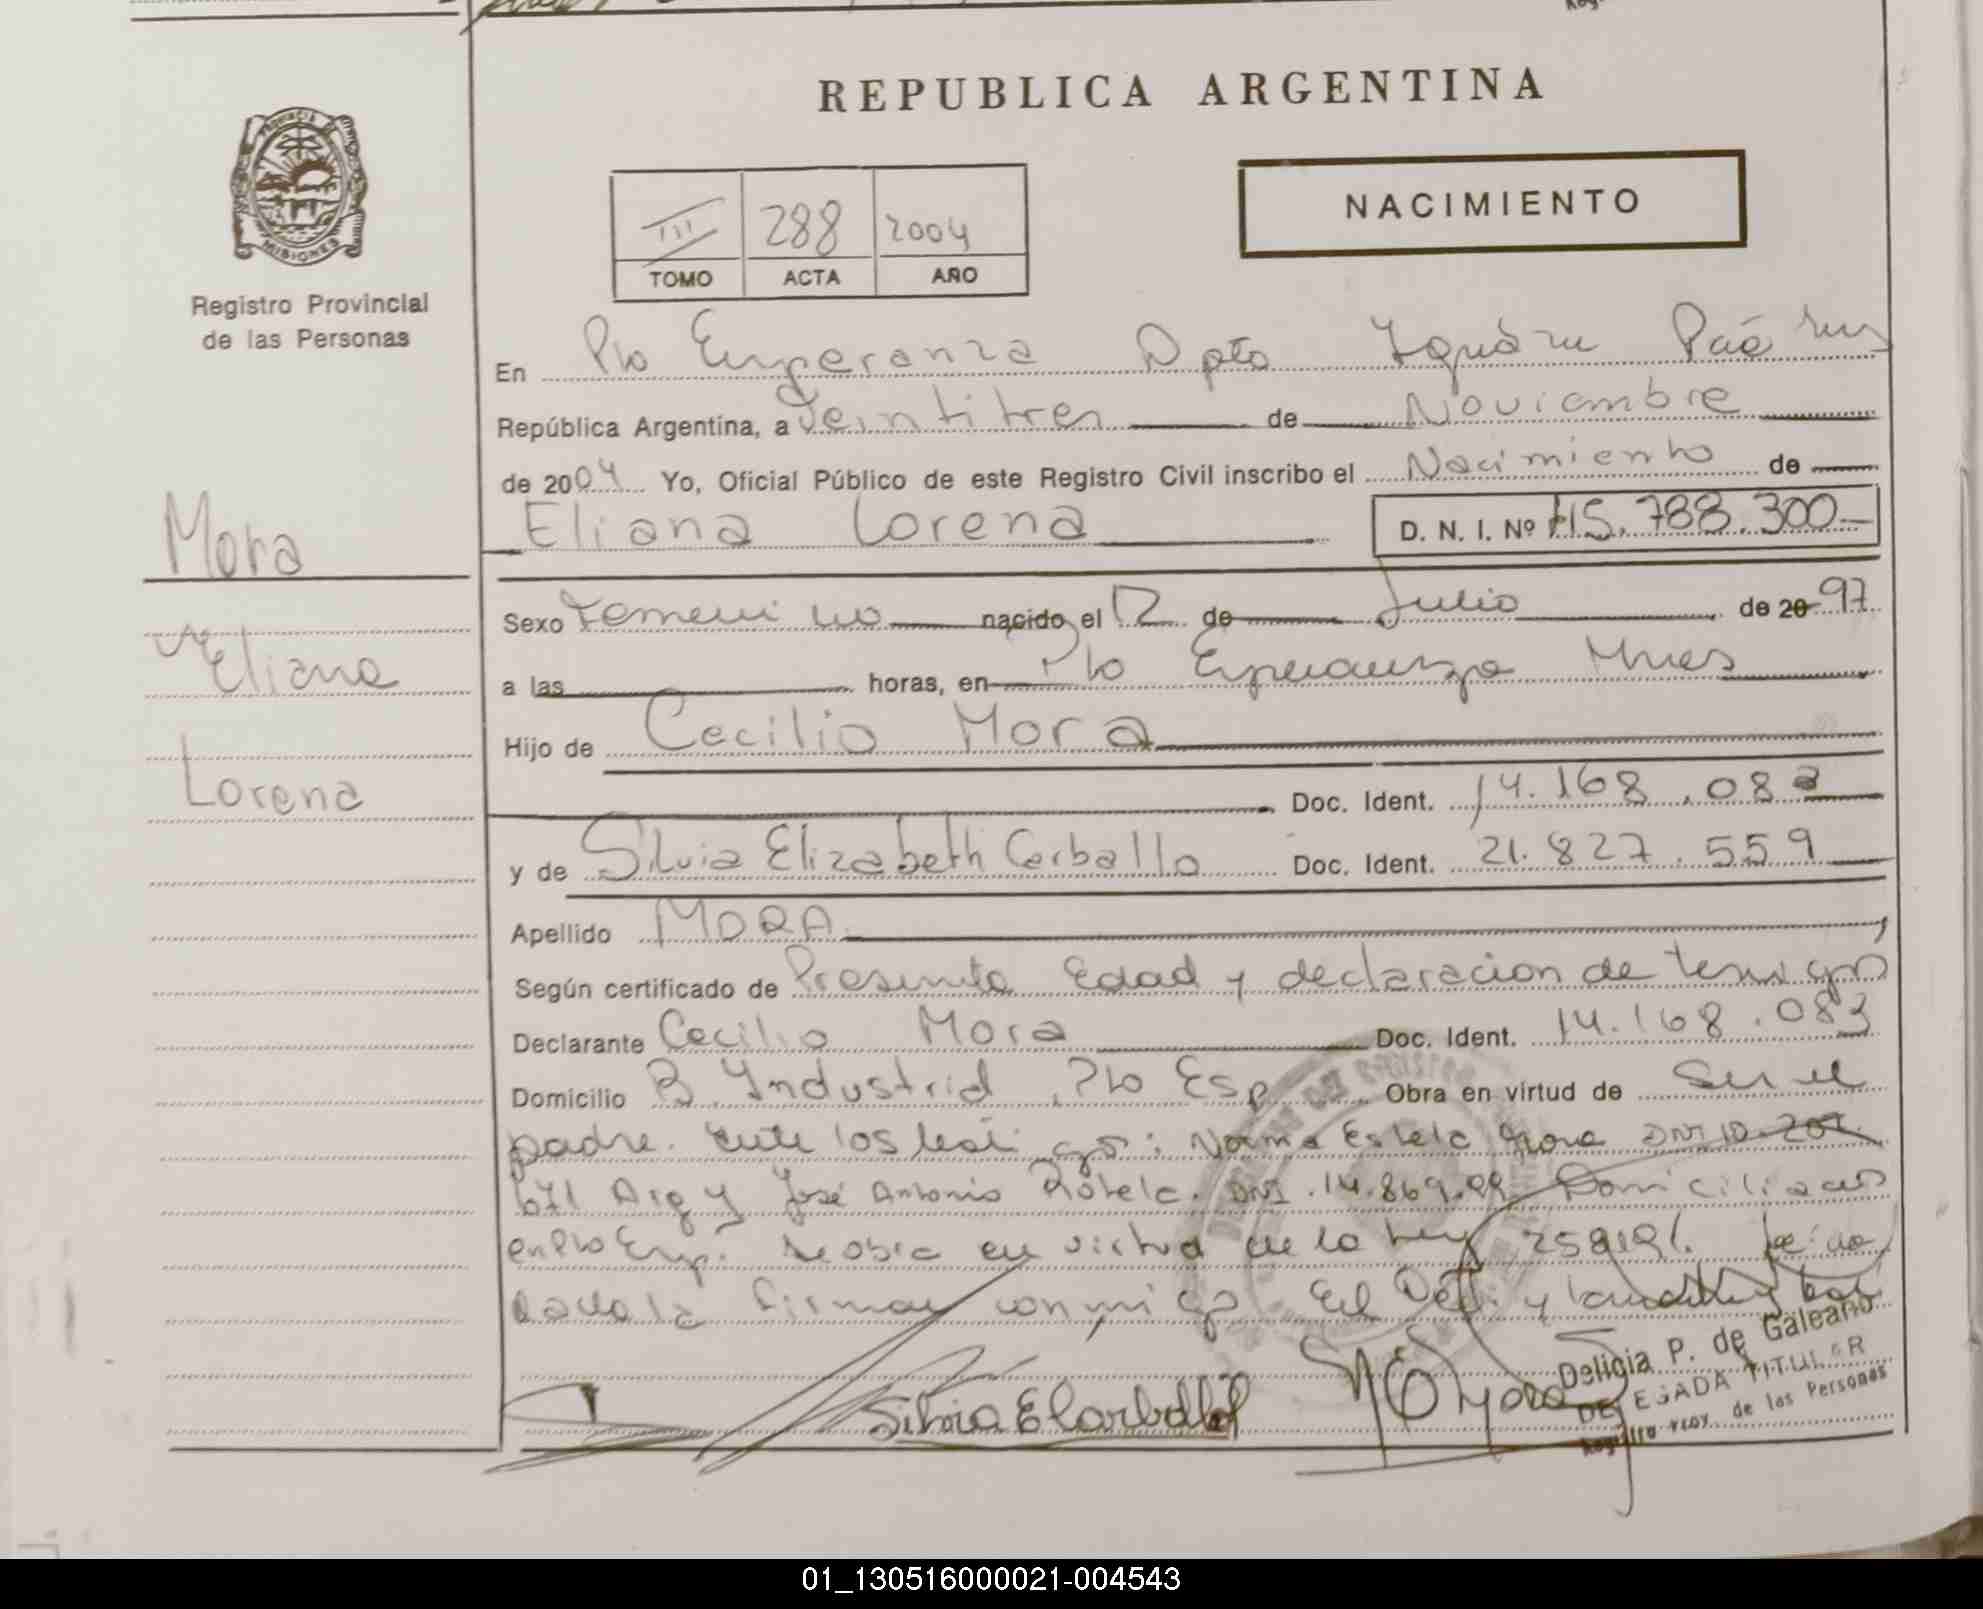 REPUBLICA ARGENTINA
PROVINCIA DE
MISIONES
Registro Provincial
de las Personas
III 288 2004
TOMO ACTA AÑO
NACIMIENTO
En Pto Esperanza Dpto Iguazu
República Argentina, a Veintitres de Noviembre
de 2004 Yo, Oficial Público de este Registro Civil inscribo el Nacimiento de
Eliana Lorena D. N. I. Nº 45.788.300
Mora
Eliana
Lorena
Sexo Femenino nacido el 12 de Julio de 20 97
a las horas, en Pto Esperanza Mnes
Hijo de Cecilio Mora
Doc. Ident. 14.168.083
y de Silvia Elizabeth Carballo Doc. Ident. 21.827.559
Apellido MORA
Según certificado de Presunta Edad y declaracion de testigos
Declarante Cecilio Mora Doc. Ident. 14.168.083
Domicilio B. Industrial, Pto Esp Obra en virtud de Ser el
padre. Ante los testigos: Norma Estela DNI 10.202.
671 Arg y José Antonio Rotela. DNI. 14.869. Domiciliados
en Pto Esp. Se obra en virtud de la Ley Leida
Acta la firman conmigo
Silvia E Carballo
Delicia P. de Galeano
DELEGADA TITULAR
Registro Prov. de las Personas
01_130516000021-004543